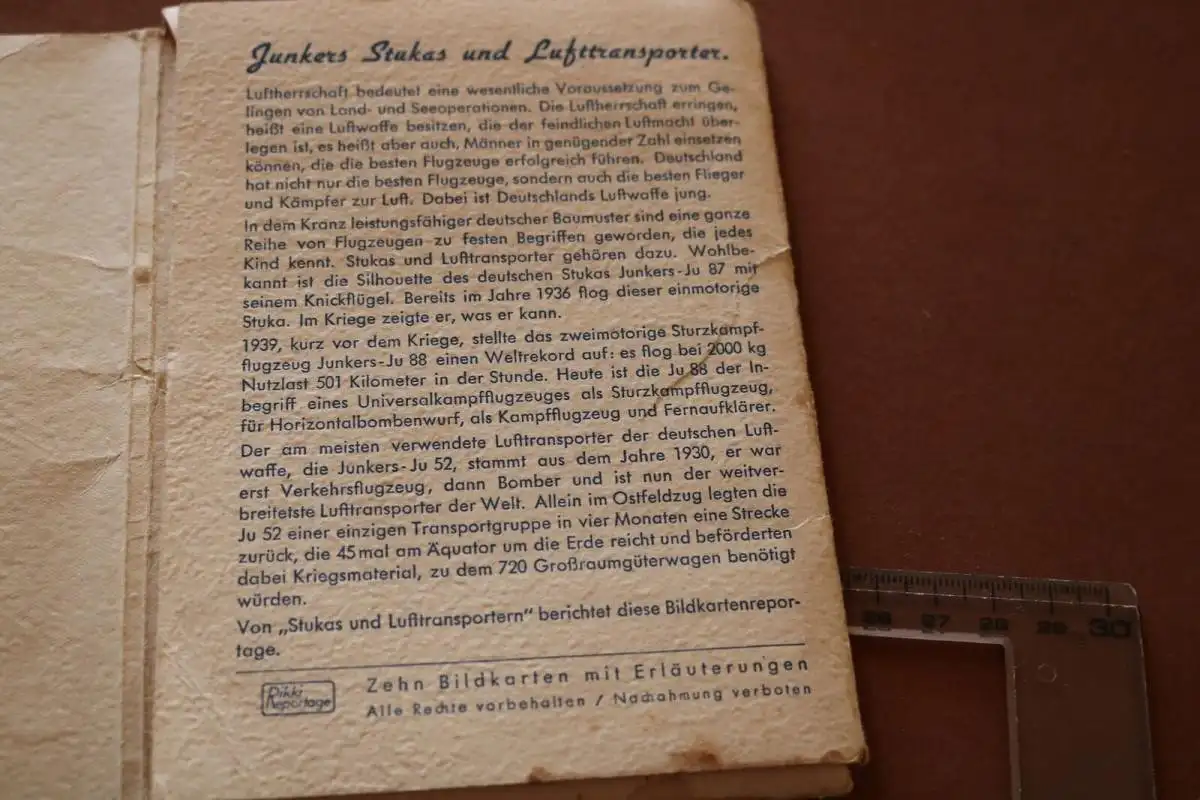 Junkers Stukas und Lufttransporter.
Luftherrschaft bedeutet eine wesentliche Voraussetzung zum Ge-
lingen von Land- und Seeoperationen. Die Luftherrschaft erringen,
heißt eine Luftwaffe besitzen, die der feindlichen Luftmacht über-
legen ist, es heißt aber auch, Männer in genügender Zahl einsetzen
können, die die besten Flugzeuge erfolgreich führen. Deutschland
hat nicht nur die besten Flugzeuge, sondern auch die besten Flieger
und Kämpfer zur Luft. Dabei ist Deutschlands Luftwaffe jung.
In dem Kranz leistungsfähiger deutscher Baumuster sind eine ganze
Reihe von Flugzeugen zu festen Begriffen geworden, die jedes
Kind kennt. Stukas und Lufttransporter gehören dazu. Wohlbe-
kannt ist die Silhouette des deutschen Stukas Junkers-Ju 87 mit
seinem Knickflügel. Bereits im Jahre 1936 flog dieser einmotorige
Stuka. Im Kriege zeigte er, was er kann.
1939, kurz vor dem Kriege, stellte das zweimotorige Sturzkampf-
flugzeug Junkers-Ju 88 einen Weltrekord auf: es flog bei 2000 kg
Nutzlast 501 Kilometer in der Stunde. Heute ist die Ju 88 der In-
begriff eines Universalkampfflugzeuges als Sturzkampfflugzeug,
für Horizontalbombenwurf, als Kampfflugzeug und Fernaufklärer.
Der am meisten verwendete Lufttransporter der deutschen Luft-
waffe, die Junkers-Ju 52, stammt aus dem Jahre 1930, er war
erst Verkehrsflugzeug, dann Bomber und ist nun der weitver-
breitetste Lufttransporter der Welt. Allein im Ostfeldzug legten die
Ju 52 einer einzigen Transportgruppe in vier Monaten eine Strecke
zurück, die 45 mal am Äquator um die Erde reicht und beförderten
dabei Kriegsmaterial, zu dem 720 Großraumgüterwagen benötigt
würden.
Von „Stukas und Lufttransportern“ berichtet diese Bildkartenrepor-
tage.
Rikki Reportage
Zehn Bildkarten mit Erläuterungen
Alle Rechte vorbehalten / Nachahmung verboten
26 27 28 29 30